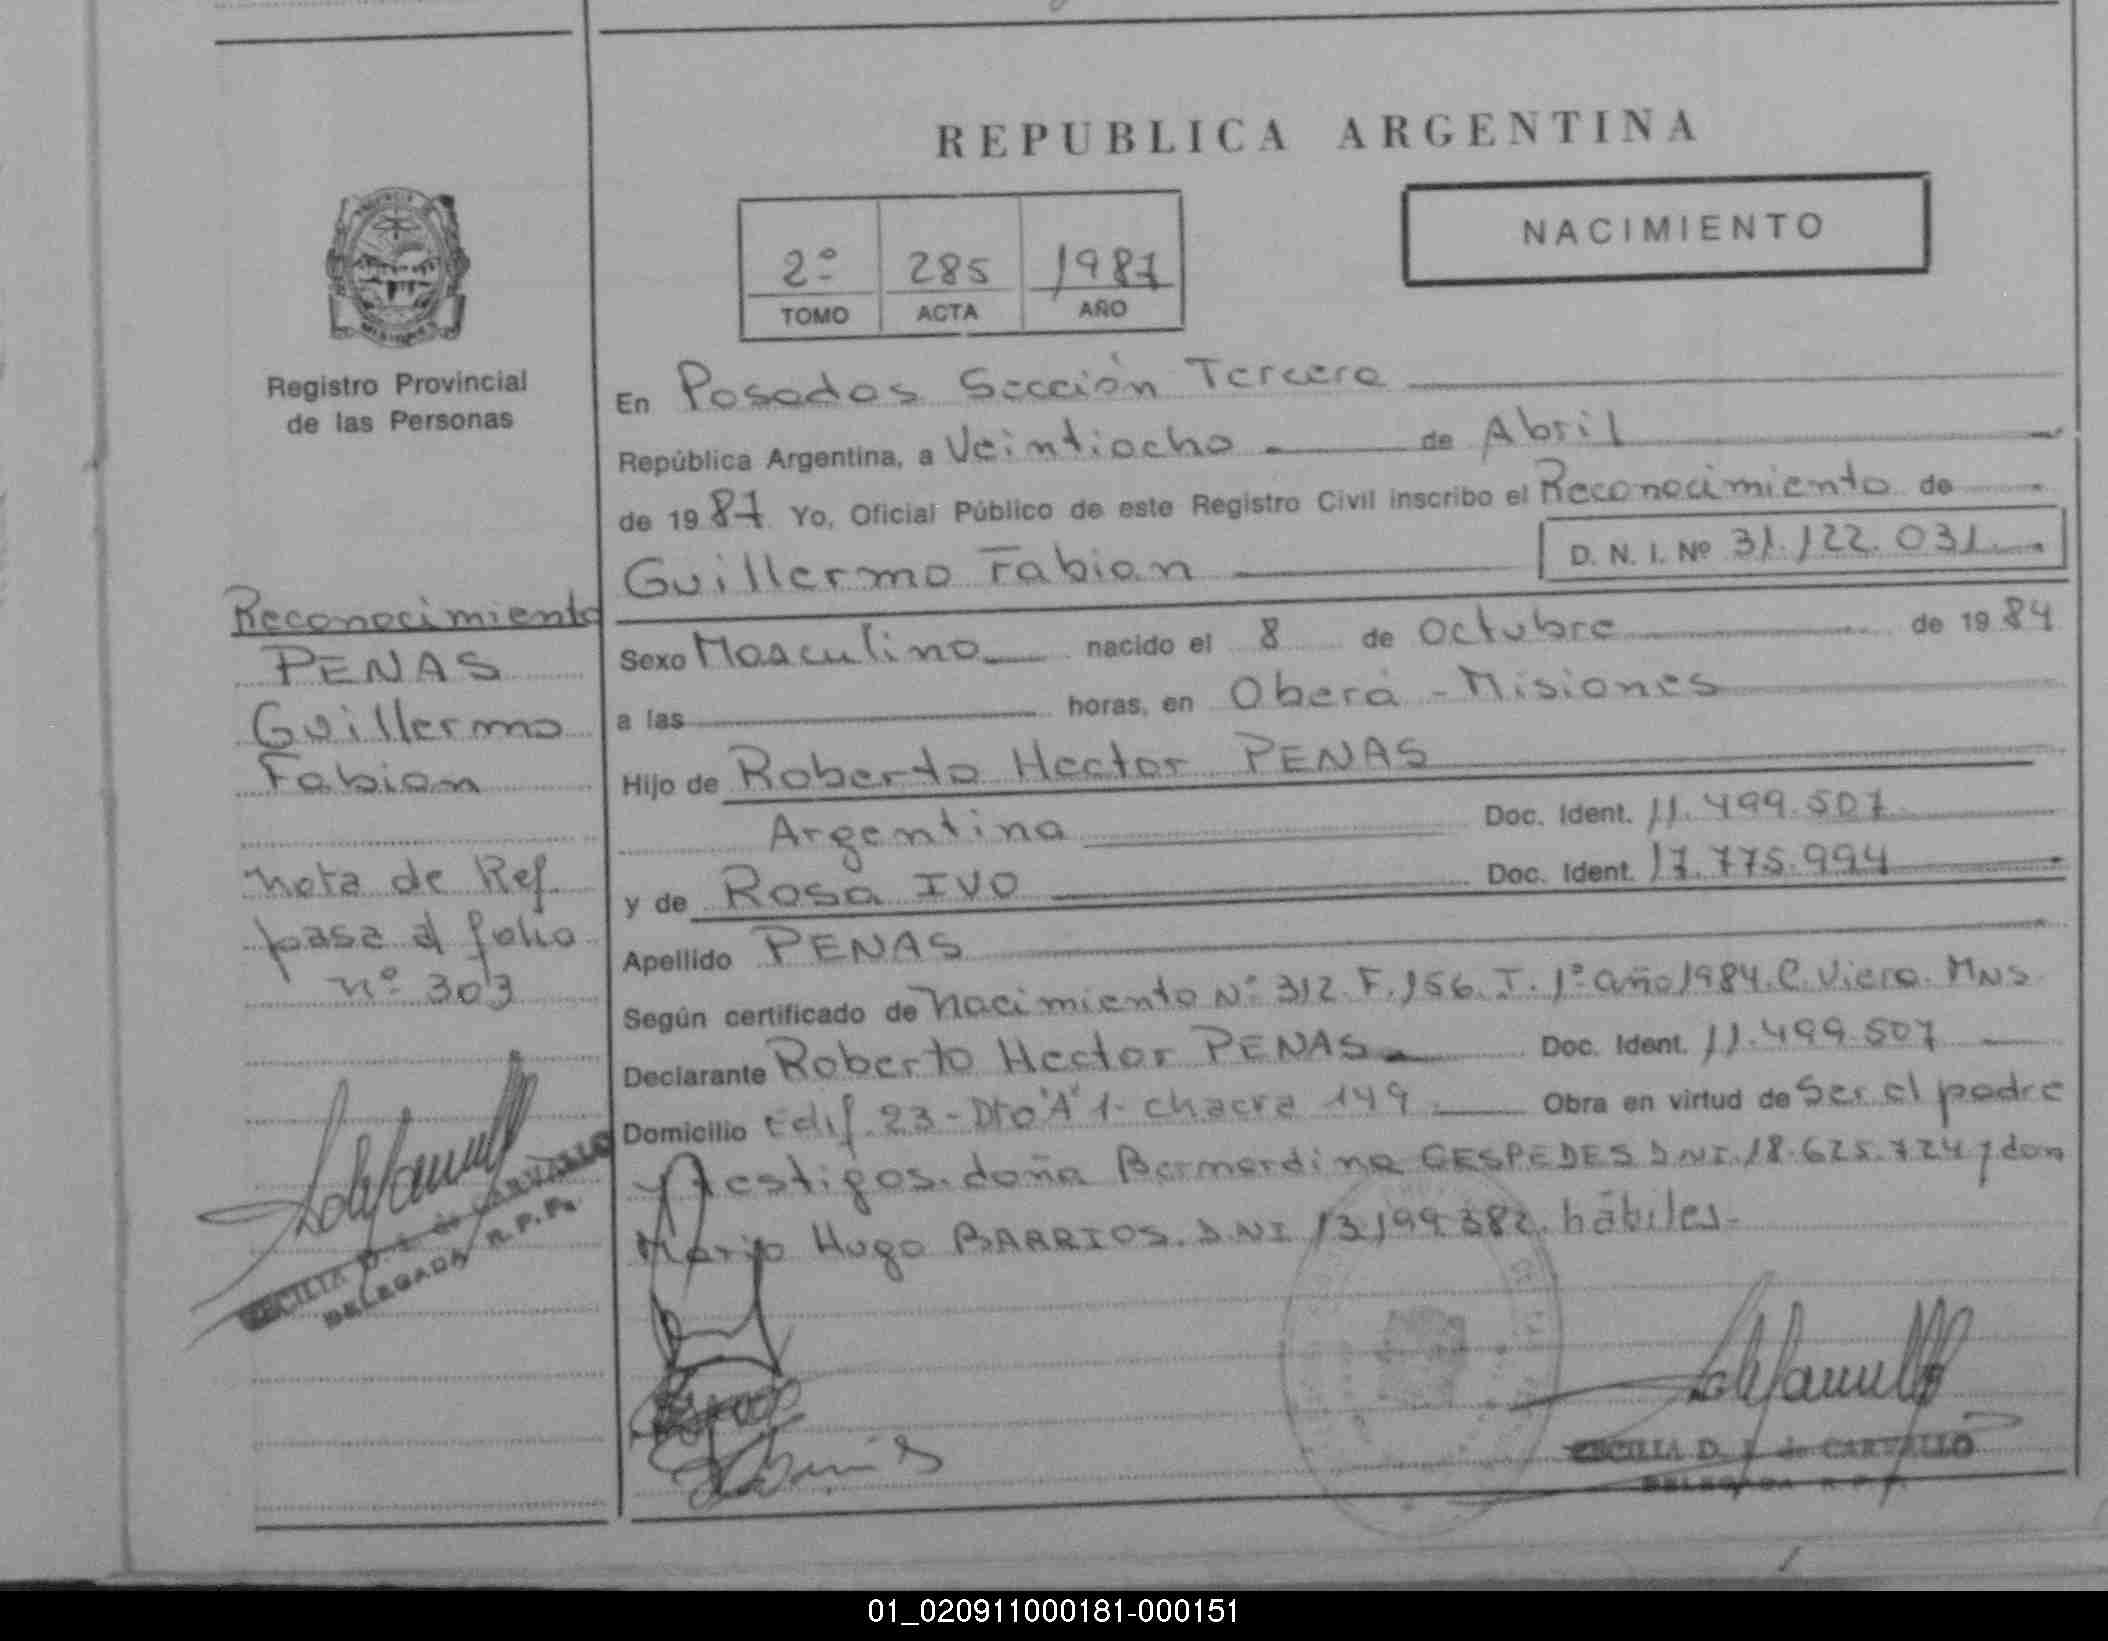 REPUBLICA ARGENTINA
NACIMIENTO
2º 285 1987
TOMO ACTA AÑO
Registro Provincial
de las Personas
Reconocimiento
PENAS
Guillermo
Fabian
Nota de Ref.
pasa al folio
nº 303
CECILIA D. de CARVALLO
DELEGADA R.P.P.
En Posadas Sección Tercera
República Argentina, a Veintiocho de Abril
de 1987 Yo, Oficial Público de este Registro Civil inscribo el Reconocimiento de
Guillermo Fabian D. N. I. Nº 31.122.031.
Sexo Masculino nacido el 8 de Octubre de 1984
a las horas, en Oberá - Misiones
Hijo de Roberto Hector PENAS
Argentina Doc. Ident. 11.499.507
y de Rosa IVO Doc. Ident. 17.775.994
Apellido PENAS
Según certificado de Nacimiento Nº 312. F. 156. T. 1º año 1984. C. Viera. Mns
Declarante Roberto Hector PENAS Doc. Ident. 11.499.507
Domicilio Edif. 23 - Dto "A" 1- chacra 149 Obra en virtud de Ser el padre
y testigos. doña Bernardina CESPEDES DNI. 18.625.724 y don
Mario Hugo BARRIOS. DNI 13199382. hábiles-
CECILIA D. de CARVALLO
DELEGADA R.P.P.
01_020911000181-000151